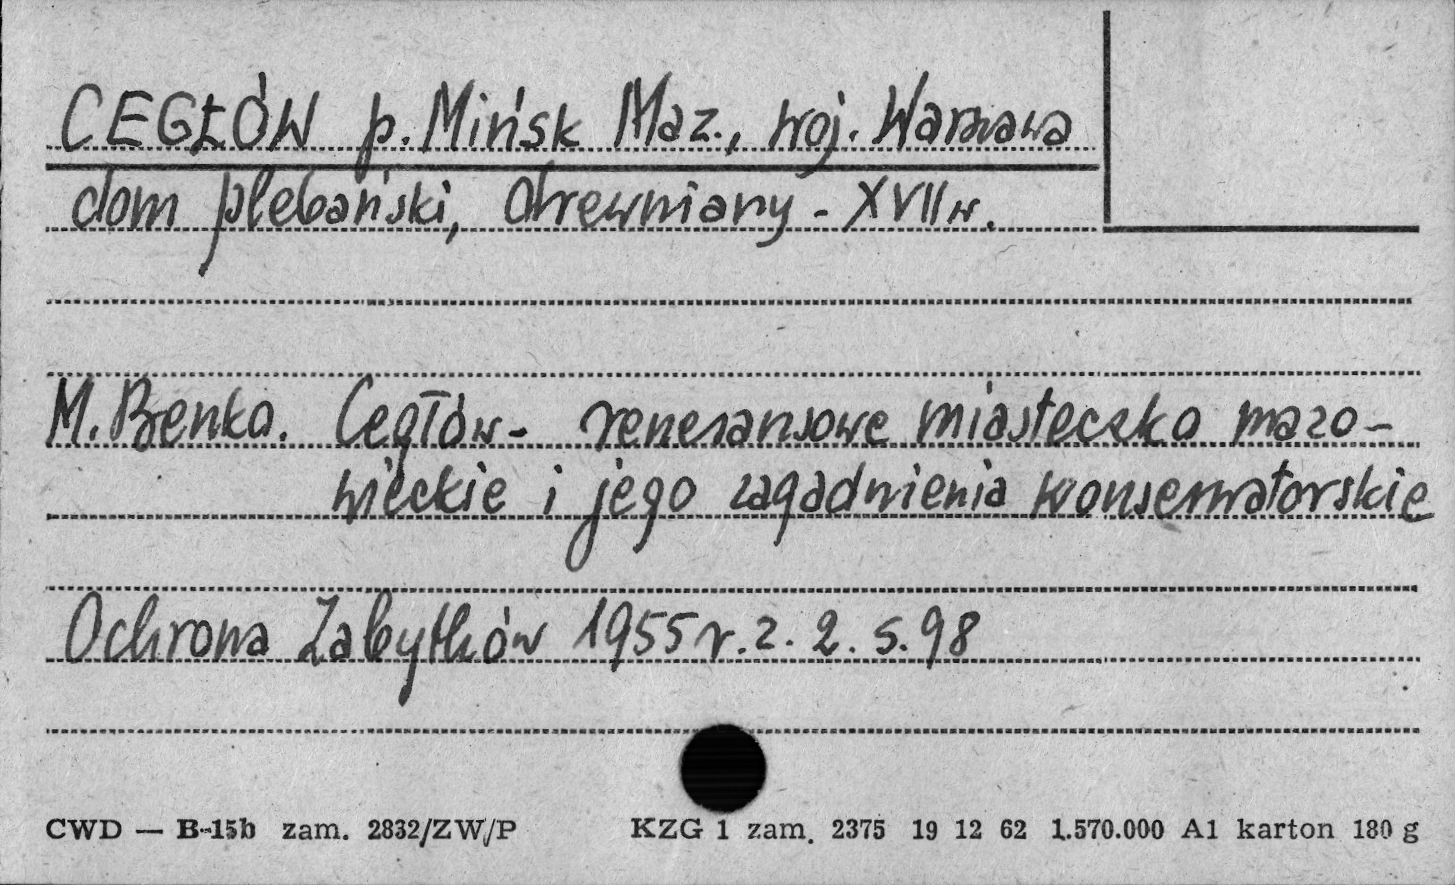 CEGŁÓW p. Mińsk Maz., woj. Warszawa
dom plebański, drewniany - XVII w.
M. Benko. Cegłów - renesansowe miasteczko mazo-
wieckie i jego zagadnienia konserwatorskie
Ochrona Zabytków 1955 r. z. 2. s. 98
CWD — B-15b zam. 2832/ZW/P KZG 1 zam. 2375 19 12 62 1.570.000 A1 karton 180 g